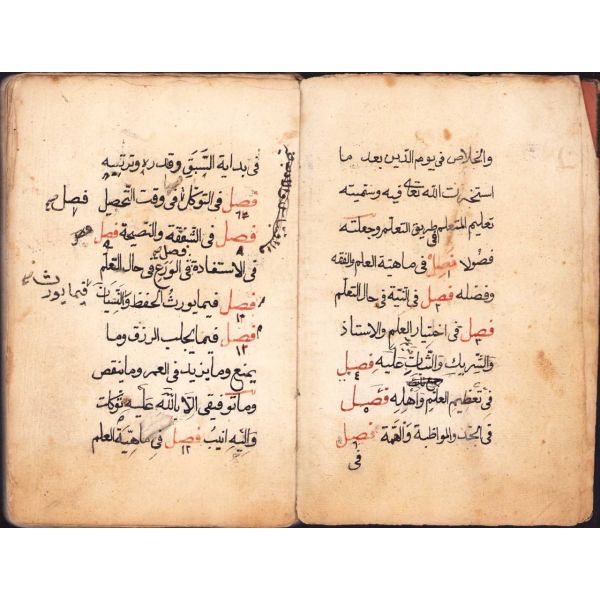 والخلاص فى يوم الدّين بعد ما
استخرت الله تعالى فيه وسميته
تعليم المتعلم طريق التعلم وجعلته
فى
فصُولا فصل فى ماهية العلم والفقه
١
وفضله فصل فى النيّة فى حال التعلّم
٢
فصل فى اختيار العلم والاستاذ
٣
والشريك والثّبات عليه فصل
٤
فى تعظيم العلم واهله فصل
٥
فى الجد والمواظبة والهمّة فصل
٦
فى
فى بداية السَّبَقِ وقدره وترتيبه
فصل فى التوكل فى وقت التّحصيل
٧
فصل
فصل فى الشفقة والنصيحة فصل
٨
٩
فصل
فى الاستفادة فى الورَع فى حال التعلم
فصل فيما يورث الحفظ والنِّسيَان
فيما يورث
فصل فيما يجلب الرزق وما
١٢
يمنع وما يزيد فى العمر وما ينقص
وما توفيقى الا بالله عليه توكلت
واليه انيب فصل فى ماهيّة العلم